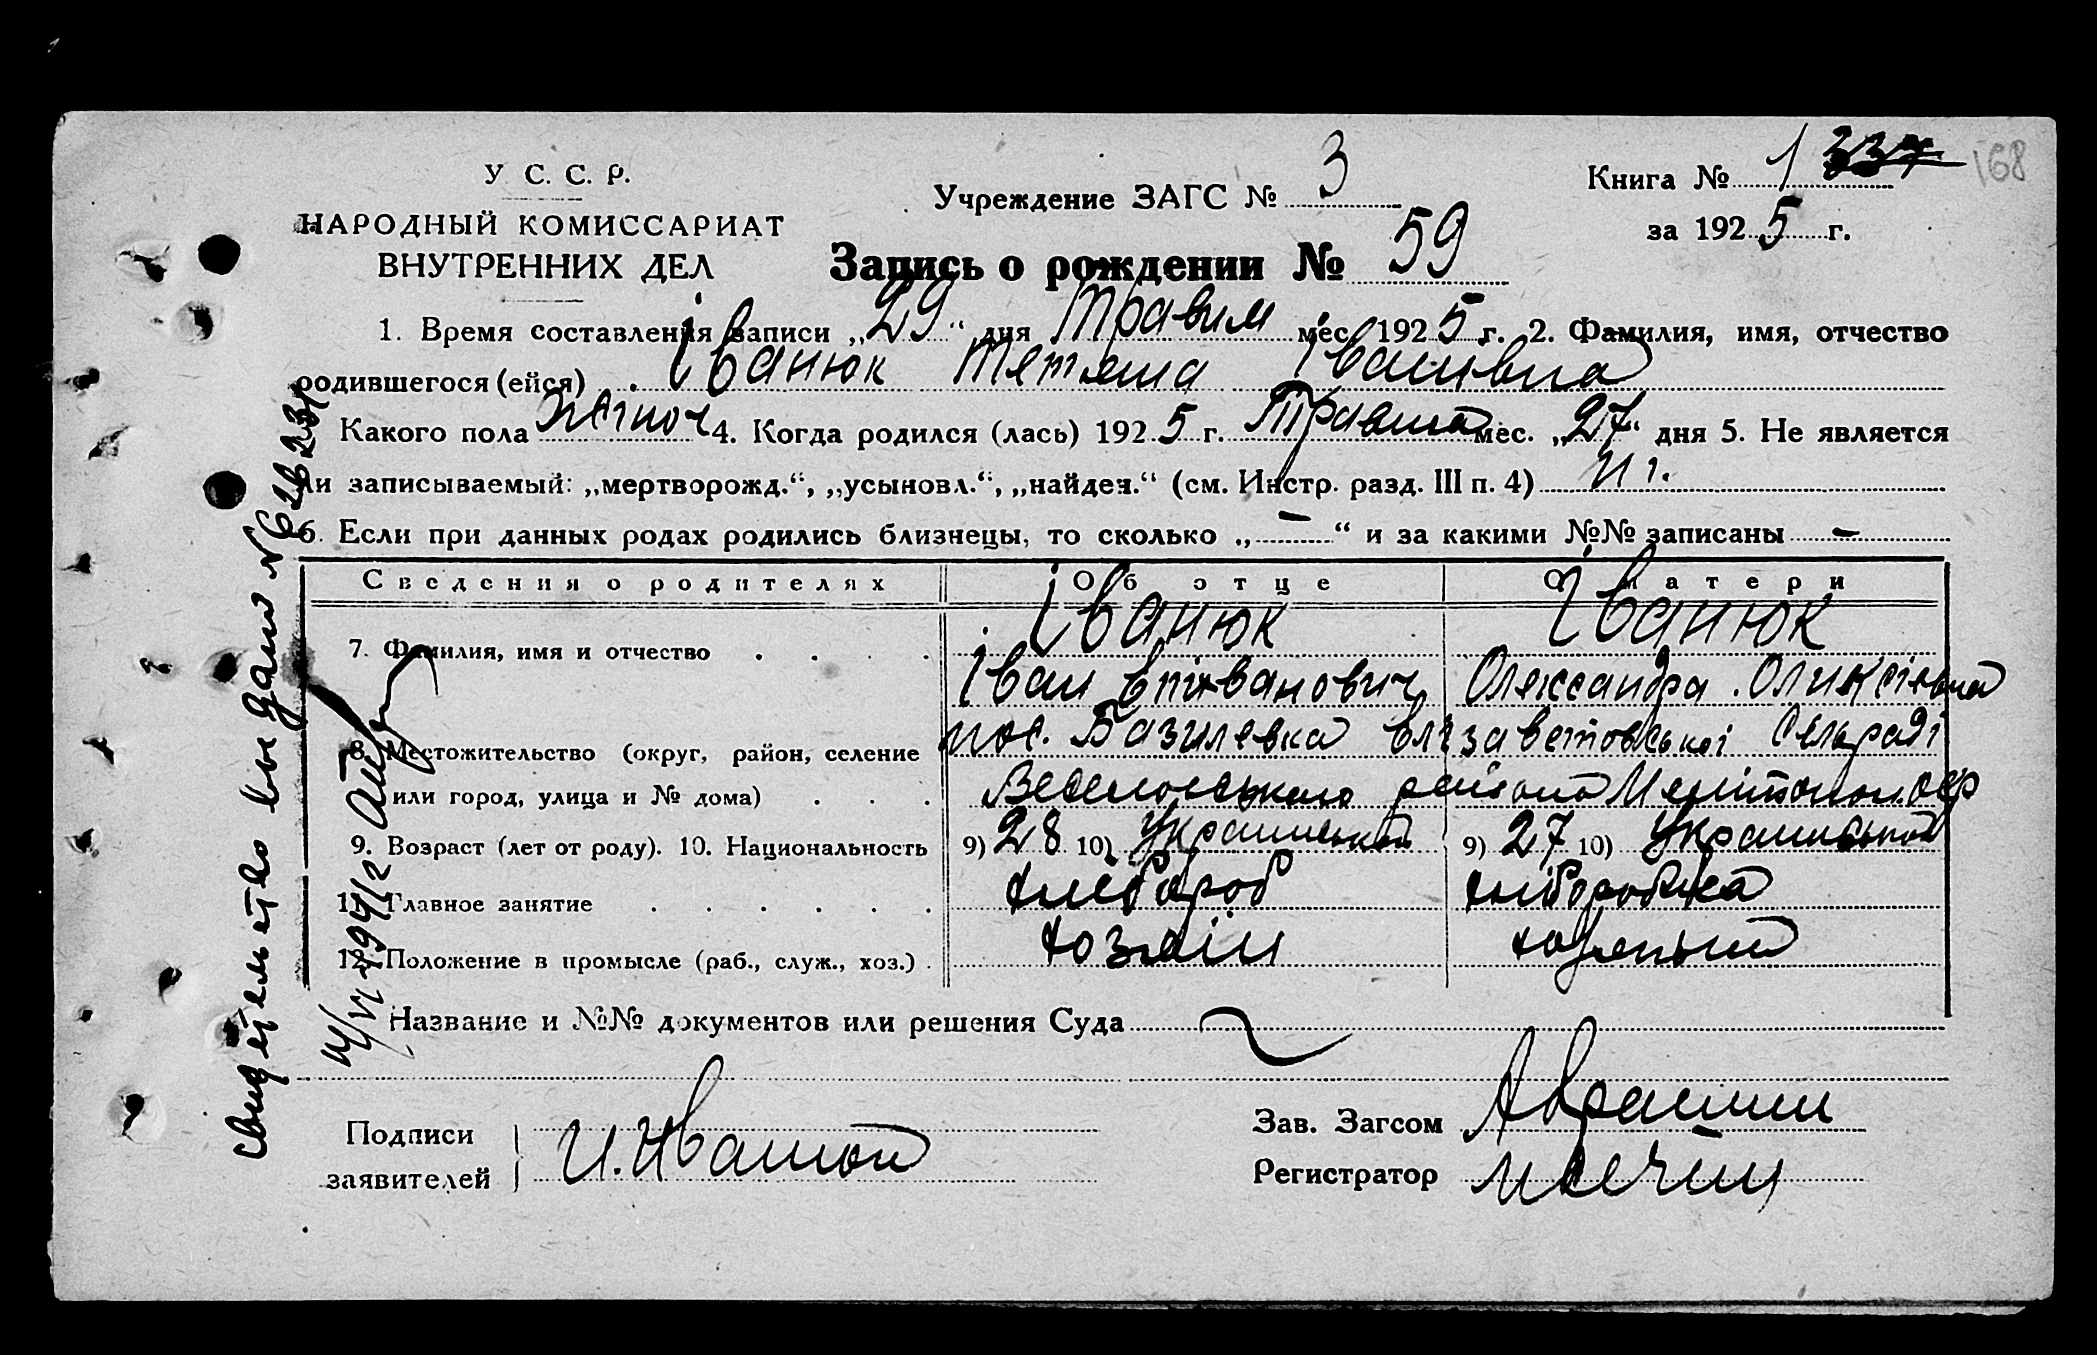 У. С. С. Р.
НАРОДНЫЙ КОМИССАРИАТ
ВНУТРЕННИХ ДЕЛ
Учреждение ЗАГС № 3
Книга № 1 337 168
за 1925 г.
Запись о рождении № 59
1. Время составления записи „29“ дня Травня мес. 1925 г. 2. Фамилия, имя, отчество
родившегося (ейся) Іванюк Тетяна Івановна
Какого пола жіноч 4. Когда родился (лась) 1925 г. Травня мес. „27“ дня 5. Не является
ли записываемый: „мертворожд.“, „усыновл.“, „найден.“ (см. Инстр. разд. III п. 4) Ні.
6. Если при данных родах родились близнецы, то сколько „—“ и за какими №№ записаны —
Сведения о родителях Об отце О матери
7. Фамилия, имя и отчество Іванюк Іванюк
Іван Олександра
8. Местожительство (округ, район, селение пос. Базилевка Єлізаветовської Сельраді
или город, улица и № дома) Веселовського района Мелітопол. окр
9. Возраст (лет от роду). 10. Национальность 9) 28 10) Украинський 9) 27 10) Украинський
11. Главное занятие хлібороб хлиборобка
12. Положение в промысле (раб., служ., хоз.) хозяїн
Название и №№ документов или решения Суда
Подписи
заявителей И. Иванюк
Зав. Загсом
Регистратор
Свидетельство вы дано №